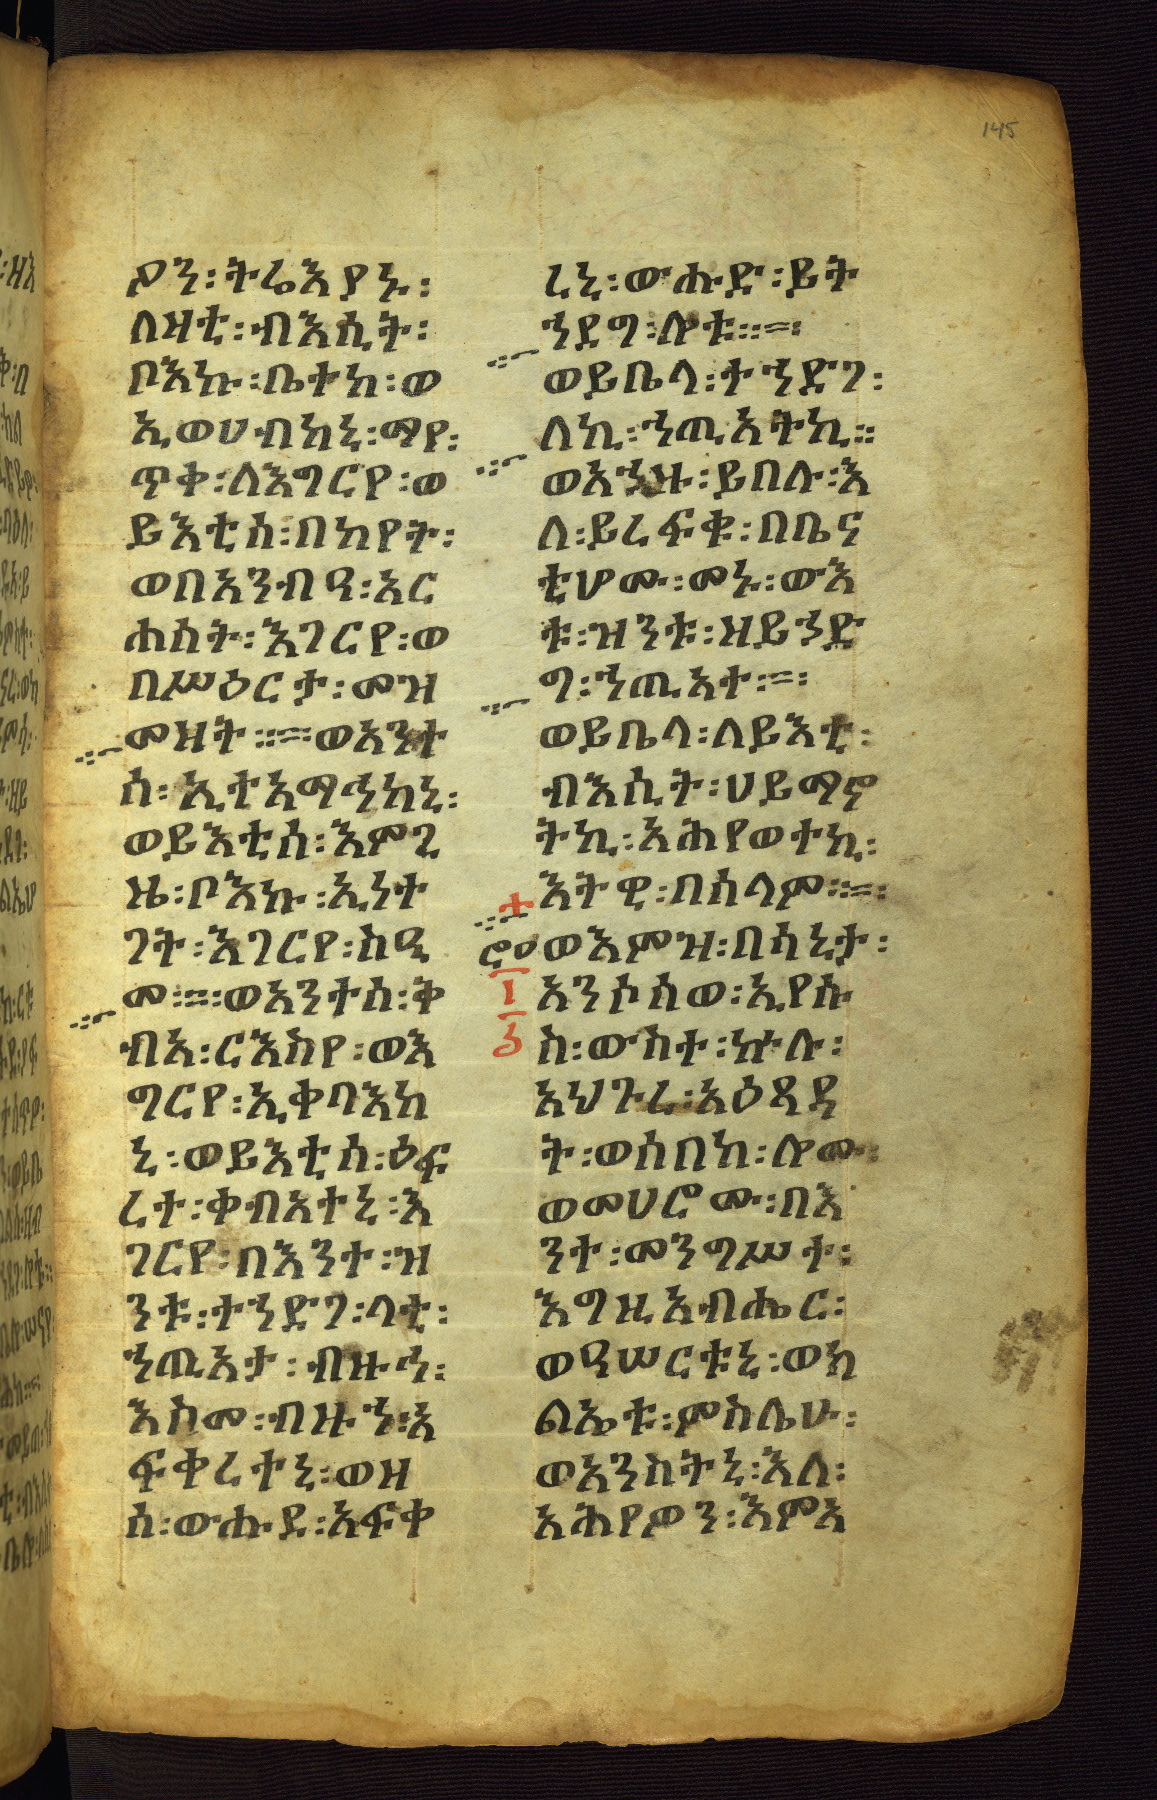 145
ዖን፡ትሬእያኑ፡
ለዛቲ፡ብእሲት፡
ቦእኩ፡ቤተከ፡ወ
ኢወሀብከኒ፡ማየ፡
ጥቀ፡ለእግርየ፡ወ
ይእቲሰ፡በከየት፡
ወበአንብዓ፡አር
ሐሰት፡እገርየ፡ወ
በሥዕርታ፡መዝ
መዘት፡፡፡=፡ወአንተ
ሰ፡ኢተአማኅከኒ፡
ወይእቲሰ፡እምጊ
ዜ፡ቦእኩ፡ኢነተ
ገት፡እገርየ፡ስዒ
መ፡፡=፡ወአንተሰ፡ቅ
ብአ፡ርእስየ፡ወእ
ግርየ፡ኢቀባእከ
ኒ፡ወይእቲሰ፡ዕፍ
ረተ፡ቀብአተኒ፡እ
ገርየ፡በእንተ፡ዝ
ንቱ፡ተኀድገ፡ላቲ፡
ኀጢአታ፡ብዙኅ፡
እስመ፡ብዙኀ፡አ
ፍቀረተኒ፡ወዘ
ሰ፡ውሑደ፡አፍቀ
ረኒ፡ውሑድ፡ይት
ኀደግ፡ሎቱ፡፡፡=፡
ወይቤላ፡ተኀድገ፡
ለኪ፡ኀጢአትኪ፡፡
ወአኀዙ፡ይበሉ፡እ
ለ፡ይረፍቁ፡በቤና
ቲሆሙ፡መኑ፡ውእ
ቱ፡ዝንቱ፡ዘይኀድ
ግ፡ኀጢአተ፡=፡
ወይቤላ፡ለይእቲ፡
ብእሲት፡ሀይማኖ
ትኪ፡አሕየወተኪ፡
እትዊ፡በሰላም፡፡=፡
ወእምዝ፡በሳኒታ፡
አንሶሰወ፡ኢየሱ
ስ፡ውስተ፡ኵሉ፡
አህጉረ፡አዕጻዳ
ት፡ወሰበከ፡ሎሙ፡
ወመሀሮሙ፡በእ
ንተ፡መንግሥተ፡
እግዚአብሔር፡
ወዓሠርቱኒ፡ወክ
ልኤቱ፡ምስሌሁ፡
ወአንስትኒ፡እለ፡
አሕየዎን፡እምአ